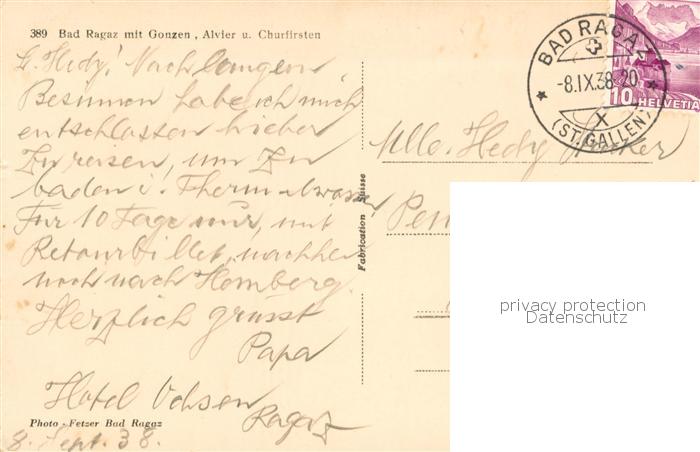 389 Bad Ragaz mit Gonzen, Alvier u. Churfirsten
L. Hedy! Nach langem
Besinnen habe ich mich
entschlossen hieher
zu reisen, um zu
baden i. Thermalwasser
Für 10 Tage nur, mit
Retourbillet, nachher
noch nach Homberg.
Herzlich grüsst
Papa
Hotel Ochsen
Ragaz
Photo - Fetzer Bad Ragaz
8. Sept. 38.
Fabrication Suisse
BAD RAGAZ
-8.IX.38-20
X
(ST. GALLEN)
10 HELVETIA
Mlle. Hedy
Pen
privacy protection
Datenschutz